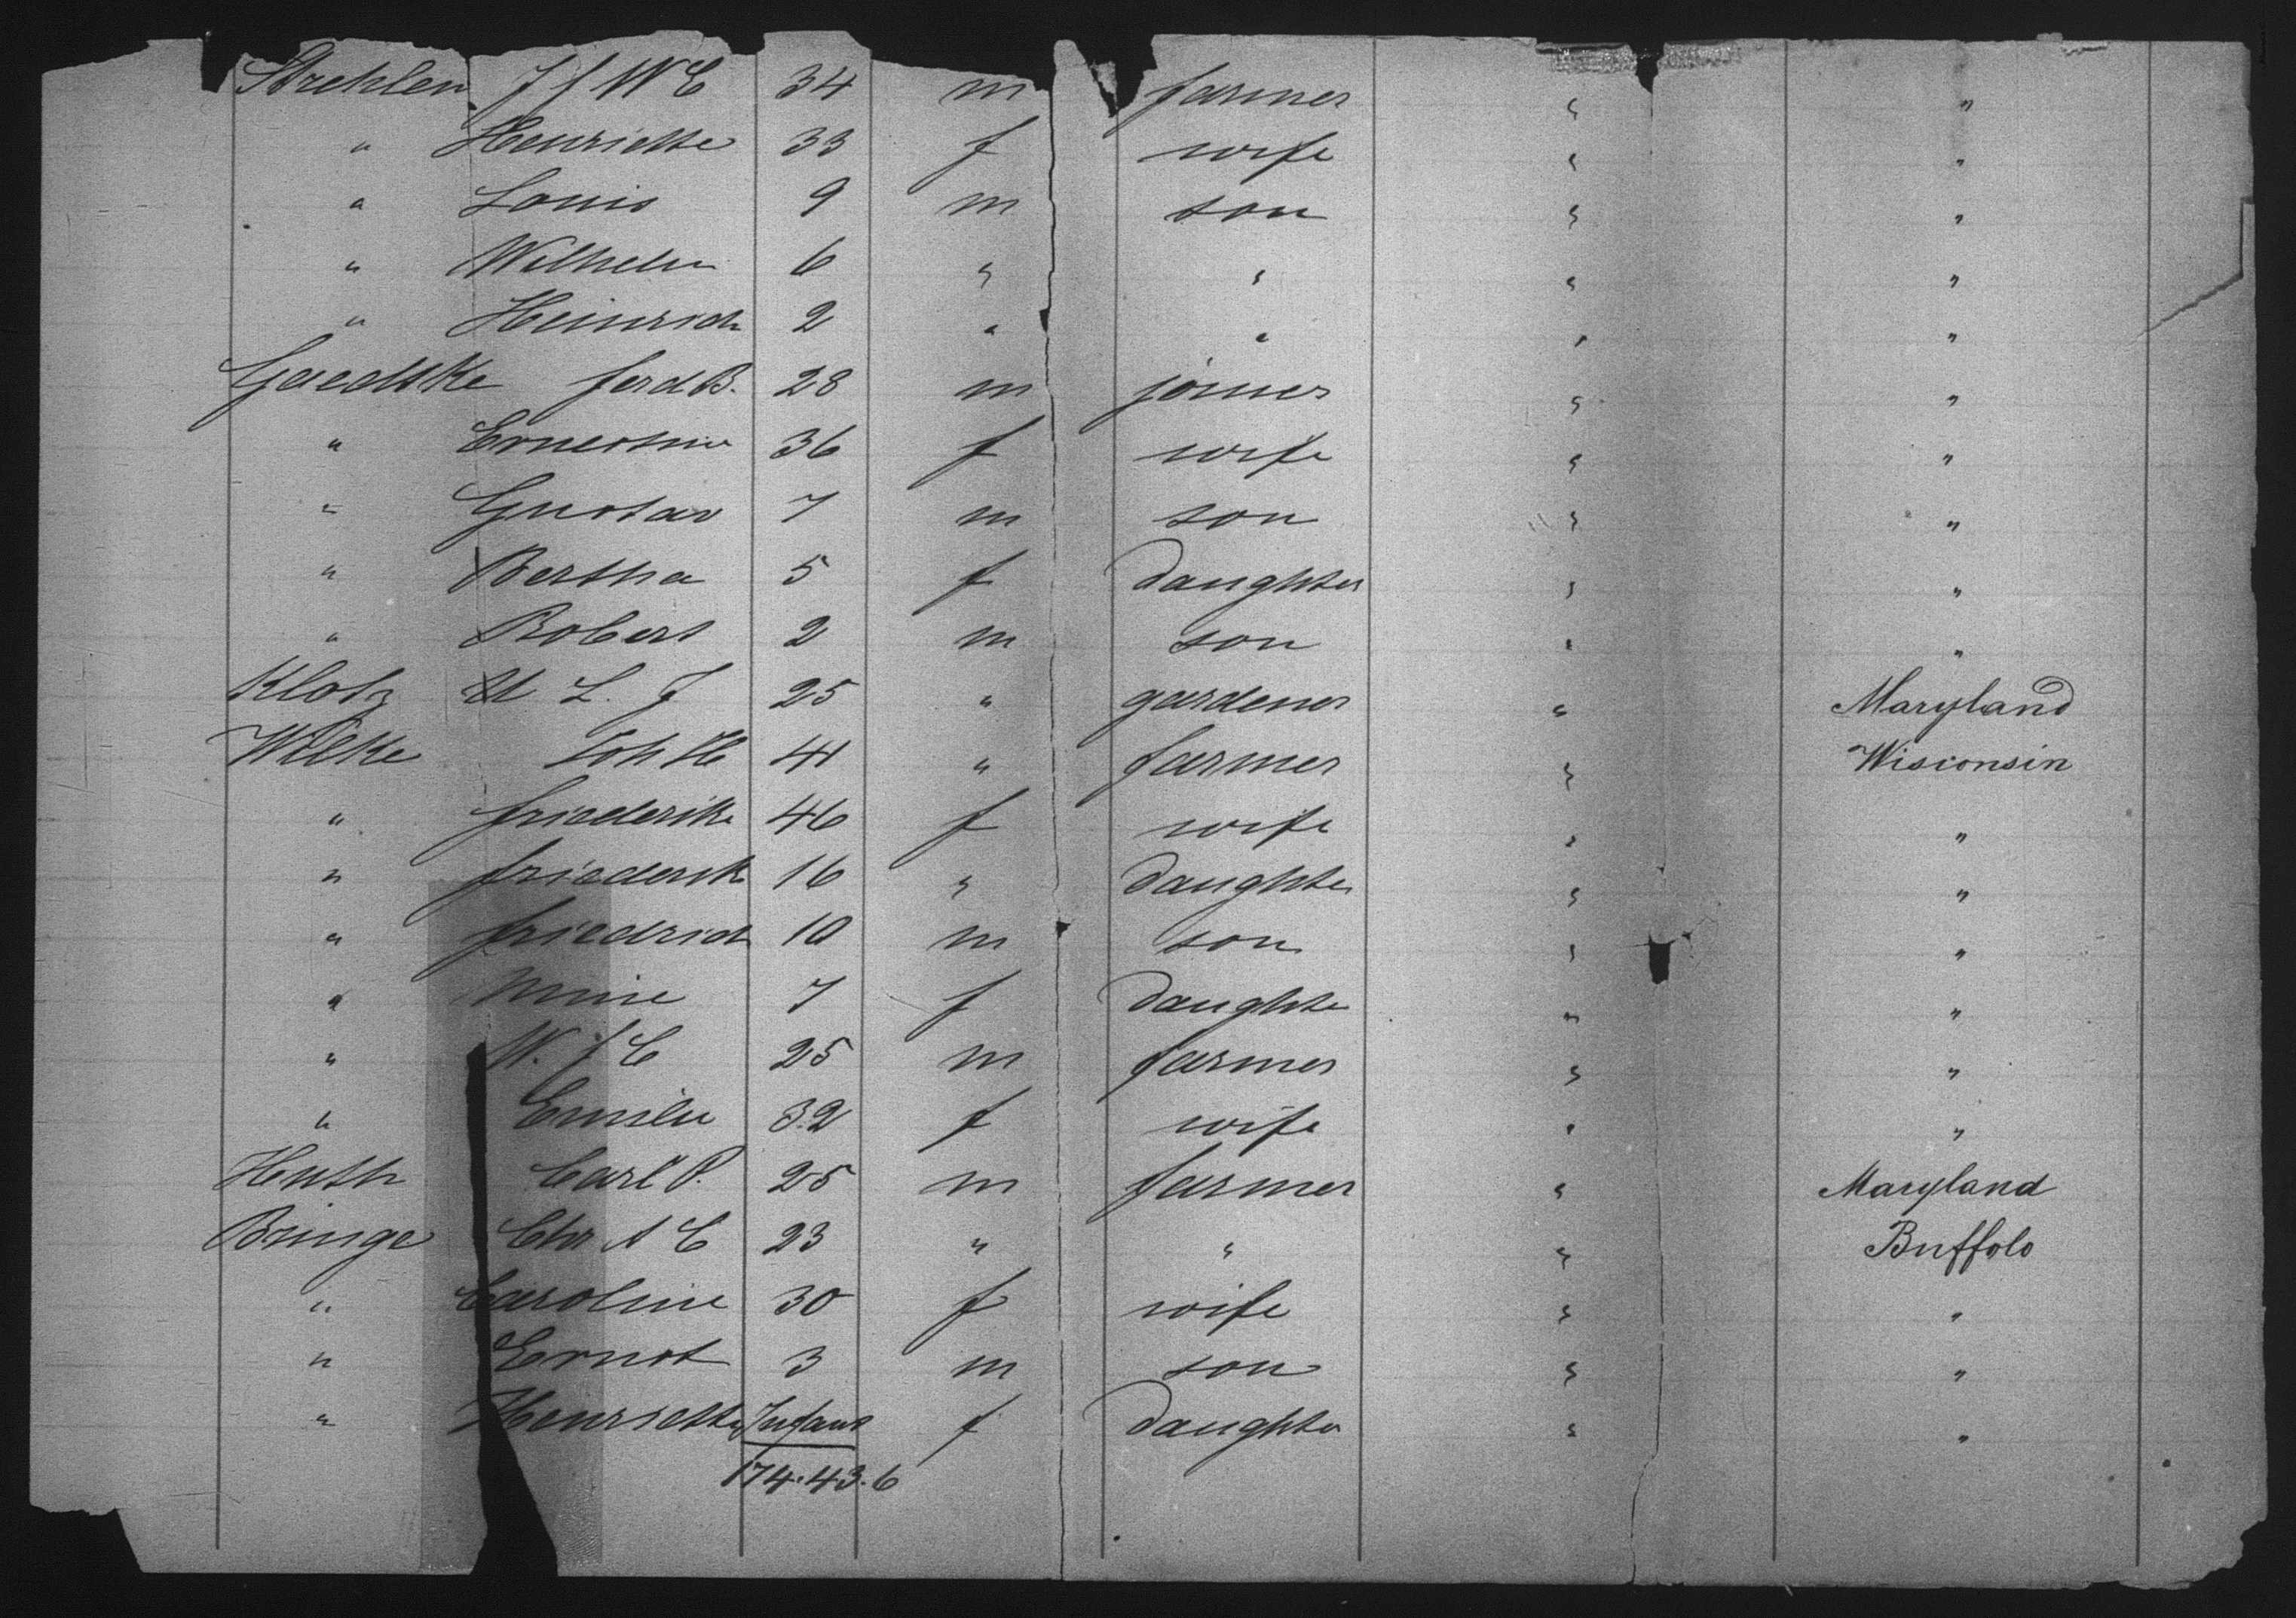 Strehlen J f W C 34 m farmer " "
" Henriette 33 f wife " "
" Louis 9 m son " "
" Wilhelm 6 " " " "
" Heinrich 2 " " " "
Gaedtke ferd B. 28 m joiner " "
" Ernestine 36 f wife " "
" Gustav 7 m son " "
" Bertha 5 f daughter " "
" Robert 2 m son " "
Klotz L. J 25 " gardener " Maryland
Wilke Joh H 41 " farmer " Wisconsin
" friederike 46 f wife " "
" friederik 16 " daughter " "
" friedrich 10 m son " "
" Mine 7 f daughter " "
" W. f C 25 m farmer " "
" Emilie 32 f wife " "
Huth Carl P. 25 m farmer " Maryland
Bringe Chr A C 23 " " " Buffolo
" Caroline 30 f wife " "
" Ernst 3 m son " "
" Henriette Infant f daughter " "
174.43.6